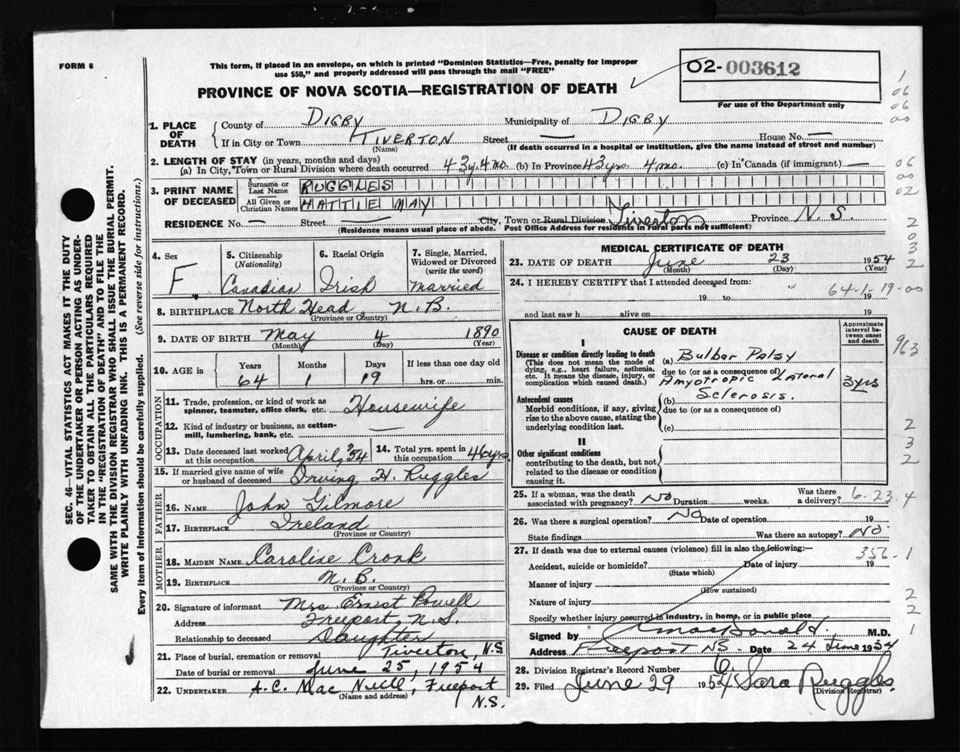 FORM 6
This form, if placed in an envelope, on which is printed "Dominion Statistics—Free, penalty for improper
use $50," and properly addressed will pass through the mail "FREE"
02-003612
PROVINCE OF NOVA SCOTIA—REGISTRATION OF DEATH
For use of the Department only
1. PLACE OF DEATH { County of DIGBY Municipality of DIGBY
If in City or Town TIVERTON Street — House No. —
(Name) (If death occurred in a hospital or institution, give the name instead of street and number)
2. LENGTH OF STAY (in years, months and days)
(a) In City, Town or Rural Division where death occurred 43y. 4mo. (b) In Province 43yrs 4mo. (c) In Canada (if immigrant) —
3. PRINT NAME OF DECEASED { Surname or Last Name RUGGLES
All Given or Christian Names HATTIE MAY
RESIDENCE No. — Street — City, Town or Rural Division Tiverton Province N.S.
(Residence means usual place of abode. Post Office Address for residents in rural parts not sufficient)
4. Sex F
5. Citizenship (Nationality) Canadian
6. Racial Origin Irish
7. Single, Married, Widowed or Divorced (write the word) married
8. BIRTHPLACE North Head, N.B.
(Province or Country)
9. DATE OF BIRTH May 4 1890
(Month) (Day) (Year)
10. AGE in { Years Months Days If less than one day old
64 1 19 hrs. or min.
OCCUPATION
11. Trade, profession, or kind of work as spinner, teamster, office clerk, etc. Housewife
12. Kind of industry or business, as cotton-mill, lumbering, bank, etc. —
13. Date deceased last worked at this occupation April, '54
14. Total yrs. spent in this occupation 46 yrs.
15. If married give name of wife or husband of deceased Irving H. Ruggles
FATHER
16. NAME John Gilmore
17. BIRTHPLACE Ireland
(Province or Country)
MOTHER
18. MAIDEN NAME Caroline Cronk
19. BIRTHPLACE N.B.
(Province or Country)
20. Signature of informant Mrs Ernest Powell
Address Freeport N.S.
Relationship to deceased Daughter
21. Place of burial, cremation or removal Tiverton, N.S
Date of burial or removal June 25, 1954
22. UNDERTAKER A.C. MacNeill, Freeport N.S.
(Name and address)
MEDICAL CERTIFICATE OF DEATH
23. DATE OF DEATH June 23 1954
(Month) (Day) (Year)
24. I HEREBY CERTIFY that I attended deceased from: 64-1-19-00
19 to 19
and last saw h alive on 19
CAUSE OF DEATH
Approximate interval between onset and death
I
Disease or condition directly leading to death
(This does not mean the mode of dying, e.g., heart failure, asthenia, etc. It means the disease, injury, or complication which caused death.)
(a) Bulbar Palsy
due to (or as a consequence of)
Amyotropic Lateral Sclerosis. 3yrs
Antecedent causes
Morbid conditions, if any, giving rise to the above cause, stating the underlying condition last.
(b)
due to (or as a consequence of)
(c)
II
Other significant conditions
contributing to the death, but not related to the disease or condition causing it.
25. If a woman, was the death associated with pregnancy? No Duration weeks. Was there a delivery? 6-23-4
26. Was there a surgical operation? No Date of operation 19
State findings Was there an autopsy? No.
27. If death was due to external causes (violence) fill in also the following:— 356-1
Accident, suicide or homicide? Date of injury 19
(State which)
Manner of injury
(How sustained)
Nature of injury
Specify whether injury occurred in industry, in home, or in public place
Signed by MacDonald M.D.
Address Freeport NS Date 24 June 1954
28. Division Registrar's Record Number 6.
29. Filed June 29 1954 Sara Ruggles
(Division Registrar)
SEC. 46—VITAL STATISTICS ACT MAKES IT THE DUTY
OF THE UNDERTAKER OR PERSON ACTING AS UNDER-
TAKER TO OBTAIN ALL THE PARTICULARS REQUIRED
IN THE "REGISTRATION OF DEATH" AND TO FILE THE
SAME WITH THE DIVISION REGISTRAR WHO SHALL ISSUE THE BURIAL PERMIT.
WRITE PLAINLY WITH UNFADING INK. THIS IS A PERMANENT RECORD.
Every item of information should be carefully supplied. (See reverse side for instructions.)
1
06
06
00
06
00
02
2
03
2
963
2
3
2
2
2
1